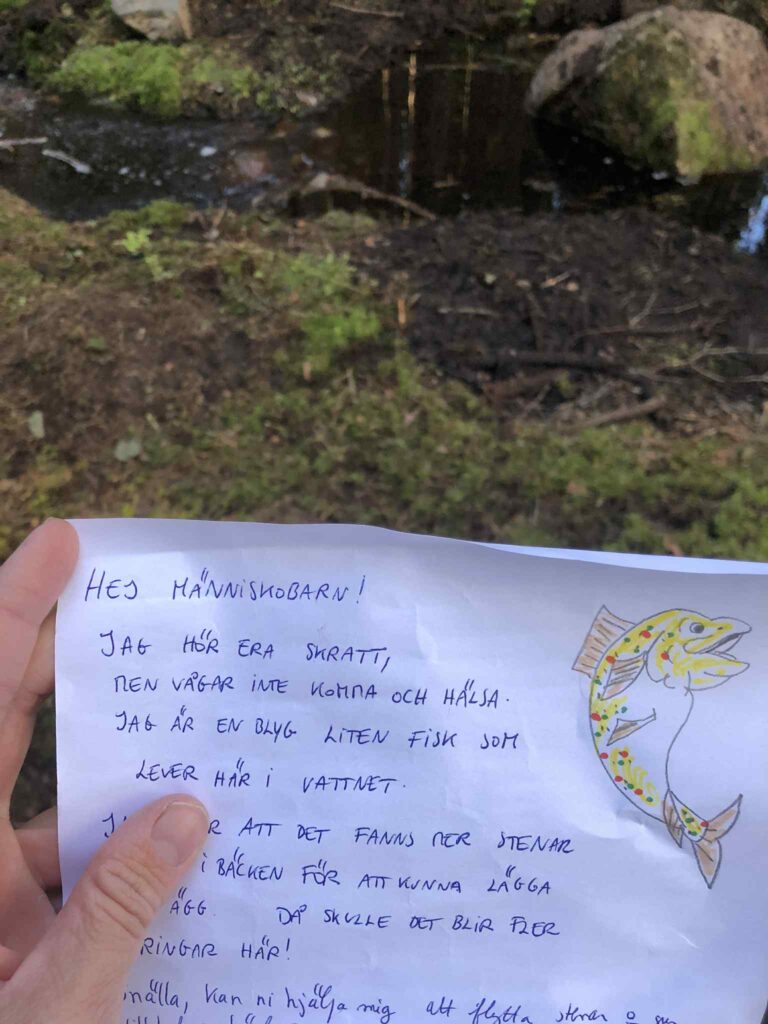 HEJ MÄNNISKOBARN!
JAG HÖR ERA SKRATT,
MEN VÅGAR INTE KOMMA OCH HÄLSA.
JAG ÄR EN BLYG LITEN FISK SOM
LEVER HÄR I VATTNET.
ATT DET FANNS MER STENAR
I BÄCKEN FÖR ATT KUNNA LÄGGA
ÄGG. DÅ SKULLE DET BLIR FLER
RINGAR HÄR!
nälla, kan ni hjälpa mig att flytta stenar o